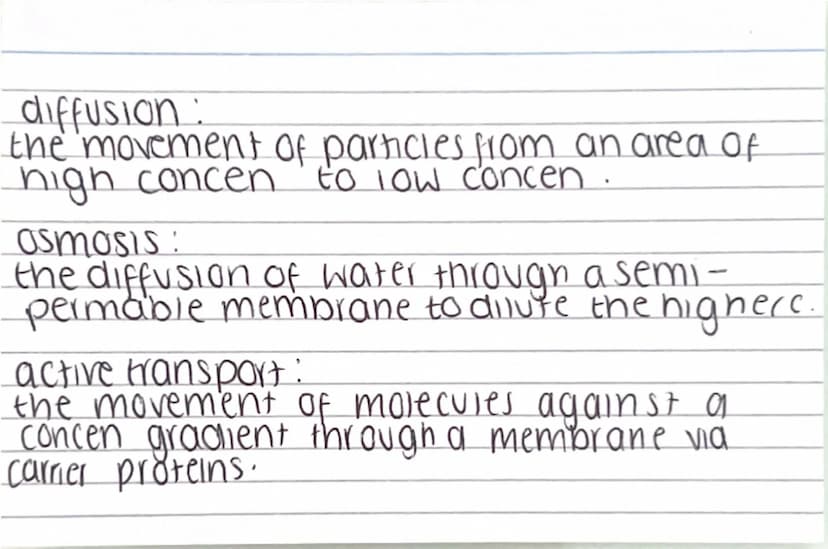 diffusion:
the movement of particles from an area of
high concen to low concen.
osmosis:
the diffusion of water through a semi-
permable membrane to dilute the higher c.
active transport:
the movement of molecules against a
concen gradient through a membrane via
carrier proteins.